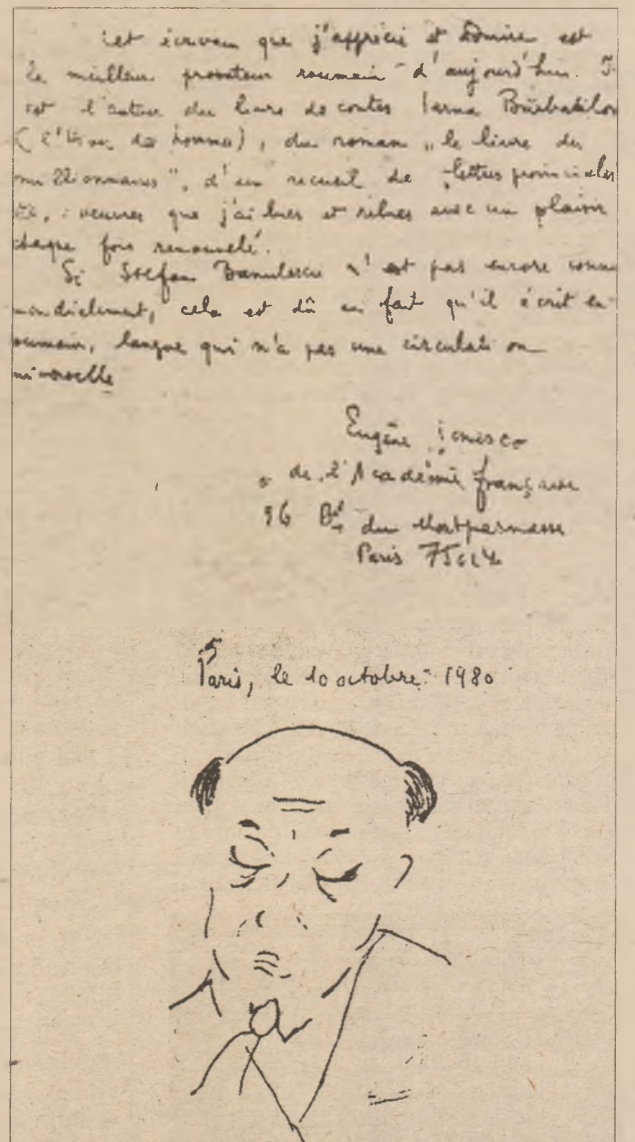 Cet écrivain que j'apprécie et admire est
le meilleur prosateur roumain d'aujourd'hui. I
est l'auteur du livre de contes Iarna Bărbaților
(l'Hiver des hommes), du roman „le livre des
millionnaires", d'un recueil de lettres provinciales
etc, oeuvres que j'ai lues et relues avec un plaisir
chaque fois renouvelé.
Si Stefan Banulescu n'est pas encore connu
mondialement, cela est dû au fait qu'il écrit en
roumain, langue qui n'a pas une circulation
universelle
Eugène Ionesco
de l'Académie française
96 Bd du Montparnasse
Paris 75014
Paris, le 10 octobre 1980